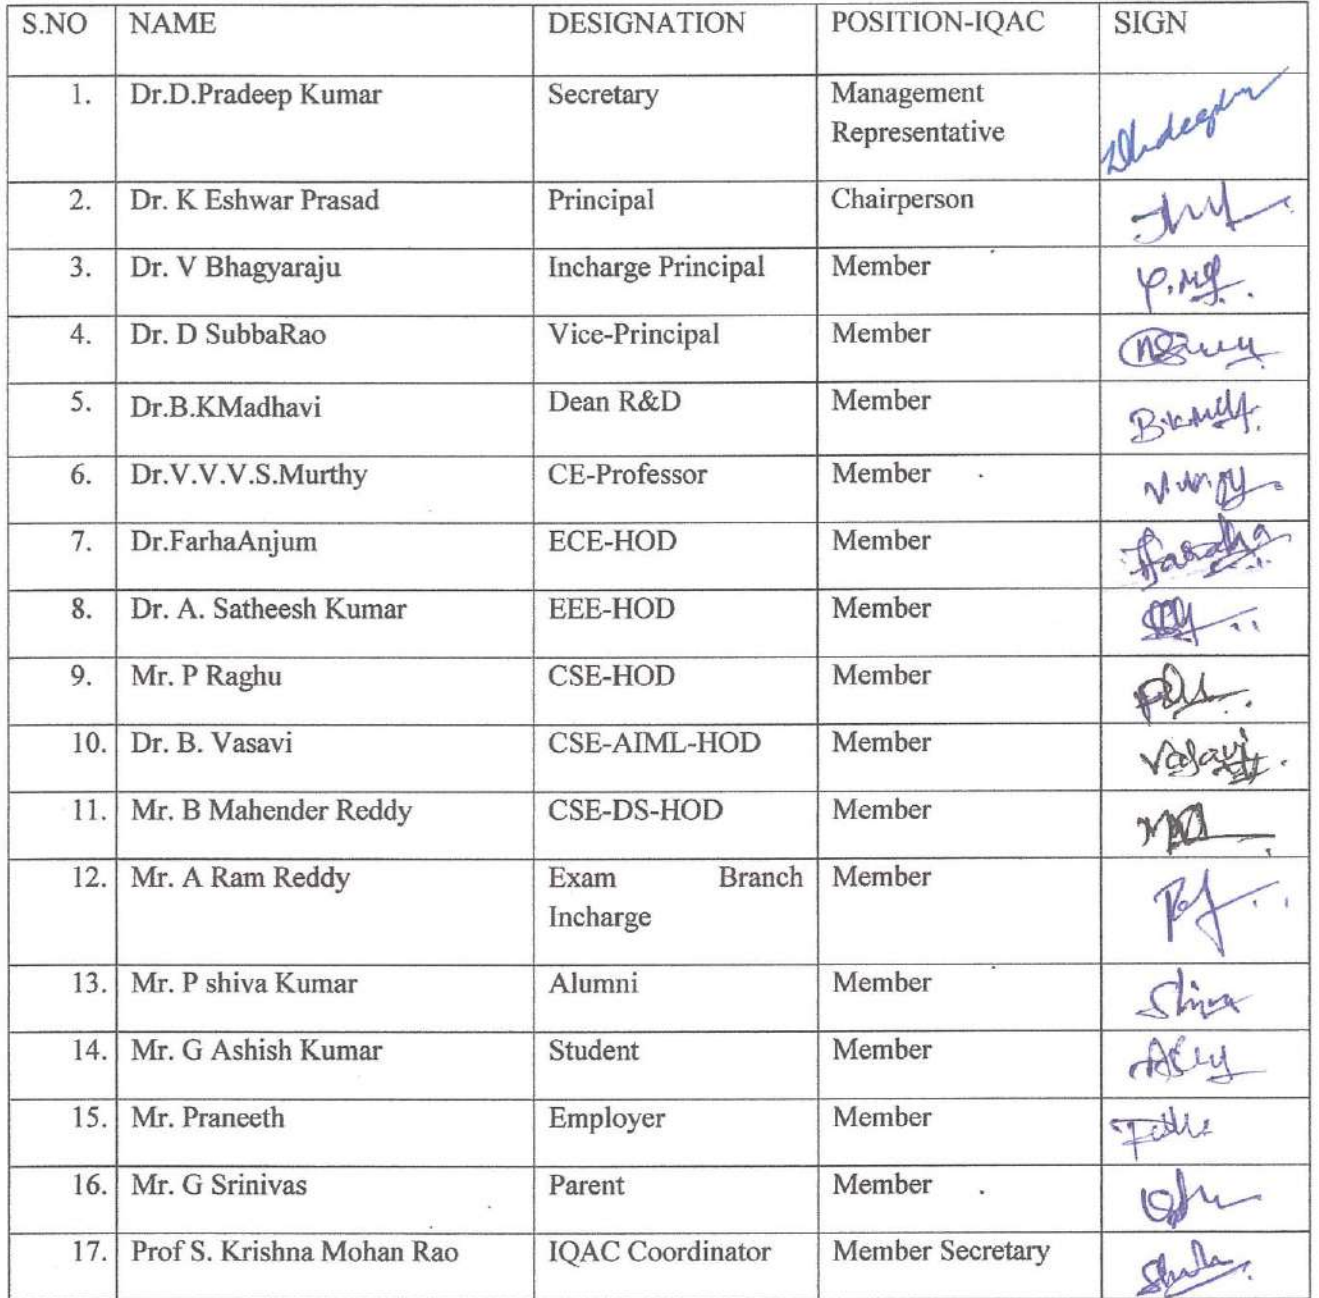 S.NO NAME DESIGNATION POSITION-IQAC SIGN
1. Dr.D.Pradeep Kumar Secretary Management
Representative
2. Dr. K Eshwar Prasad Principal Chairperson
3. Dr. V Bhagyaraju Incharge Principal Member
4. Dr. D SubbaRao Vice-Principal Member
5. Dr.B.KMadhavi Dean R&D Member
6. Dr.V.V.V.S.Murthy CE-Professor Member
7. Dr.FarhaAnjum ECE-HOD Member
8. Dr. A. Satheesh Kumar EEE-HOD Member
9. Mr. P Raghu CSE-HOD Member
10. Dr. B. Vasavi CSE-AIML-HOD Member Vasavi
11. Mr. B Mahender Reddy CSE-DS-HOD Member
12. Mr. A Ram Reddy Exam Branch Member
Incharge
13. Mr. P shiva Kumar Alumni Member Shiva
14. Mr. G Ashish Kumar Student Member
15. Mr. Praneeth Employer Member
16. Mr. G Srinivas Parent Member
17. Prof S. Krishna Mohan Rao IQAC Coordinator Member Secretary